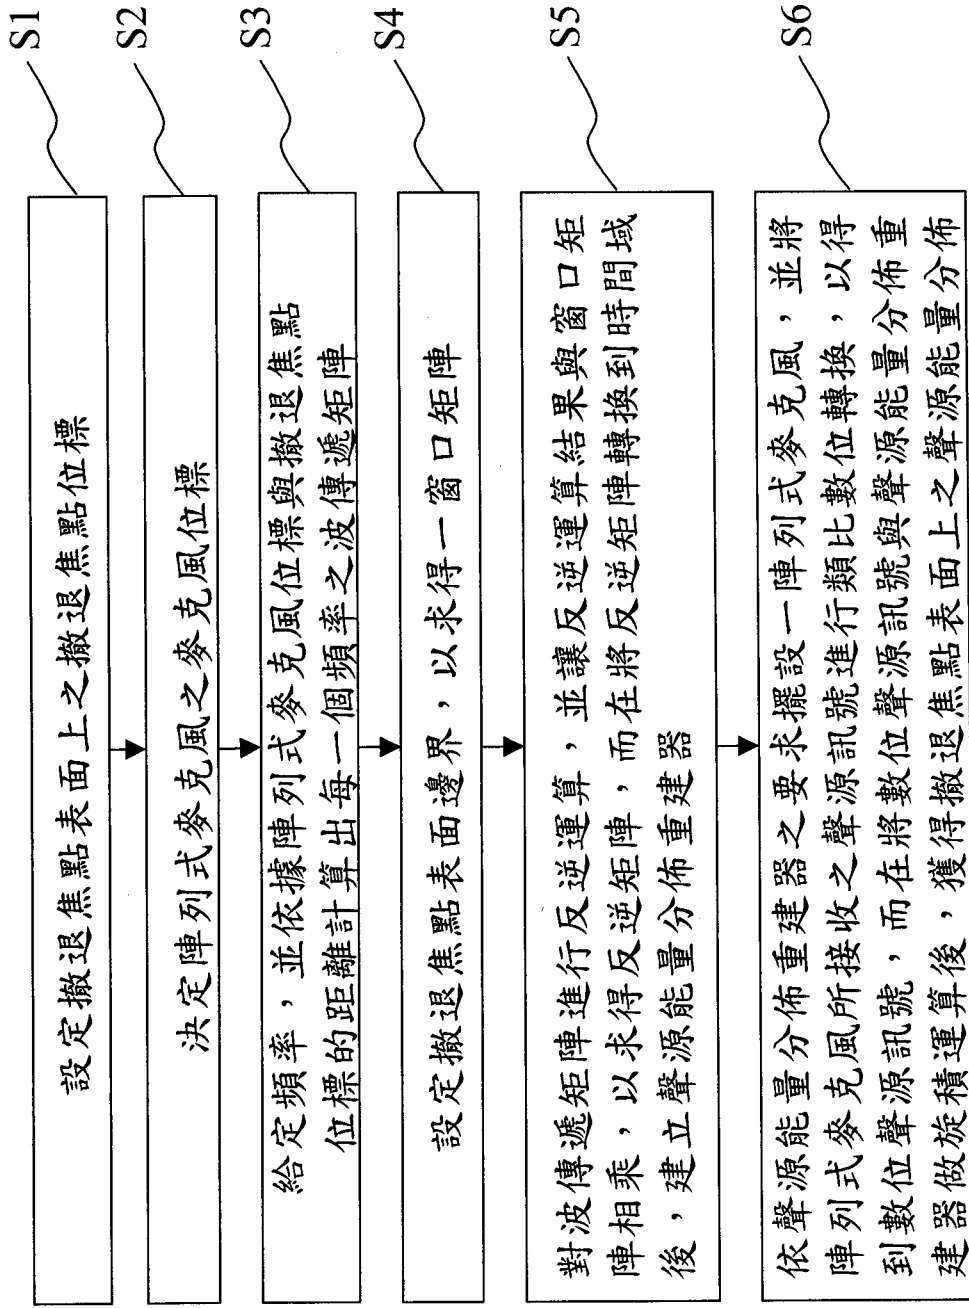 S1
設定撤退焦點表面上之撤退焦點位標
S2
決定陣列式麥克風之麥克風位標
S3
給定頻率，並依據陣列式麥克風位標與撤退焦點
位標的距離計算出每一個頻率之波傳遞矩陣
S4
設定撤退焦點表面邊界，以求得一窗口矩陣
S5
對波傳遞矩陣進行反逆運算，並讓反逆運算結果與窗口矩
陣相乘，以求得反逆矩陣，而在將反逆矩陣轉換到時間域
後，建立聲源能量分佈重建器
S6
依聲源能量分佈重建器之要求擺設一陣列式麥克風，並將
陣列式麥克風所接收之聲源訊號進行類比數位轉換，以得
到數位聲源訊號，而在將數位聲源訊號與聲源能量分佈重
建器做旋積運算後，獲得撤退焦點表面上之聲源能量分佈